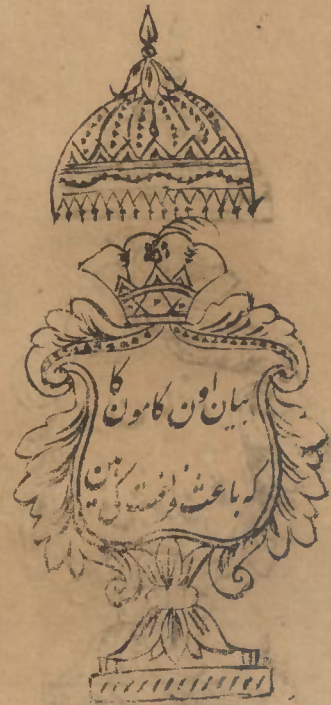 بیان اون کامون کا
که باعث فراغت کی ہین